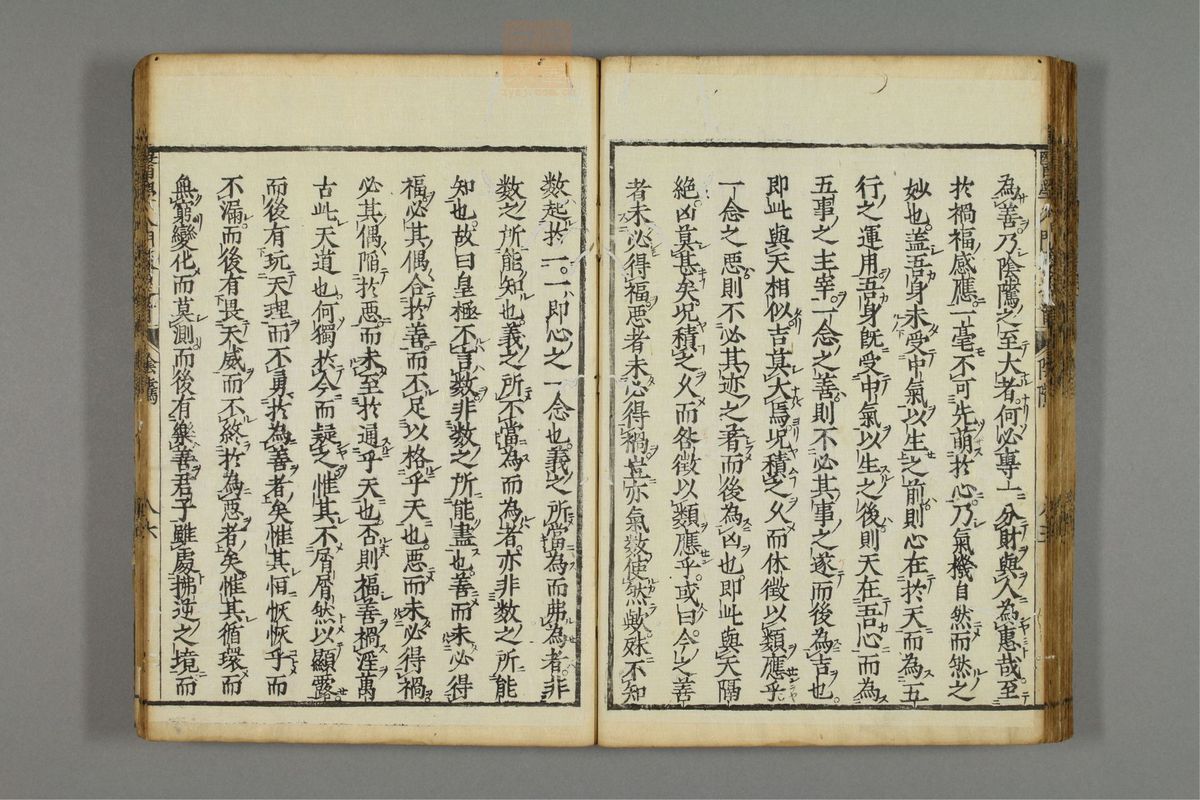 為善乃陰騭之至大者何必專一分財與人為惠哉至
於禍福感應一毫不可先萌於心乃氣機自然而然之
妙也盖吾身未受中氣以生之前則心在於天而為五
行之運用吾身既受中氣以生之後則天在吾心而為
五事之主宰一念之善則不必其事之遂而後為吉也
即此與天相似吉莫大焉况積之久而休徵以類應乎
一念之惡則不必其迹之著而後為凶也即此與天隔
絶凶莫甚矣况積之久而咎徵以類應乎或曰今之善
者未必得福惡者未必得禍豈亦氣数使然歟殊不知
数起於一一即心之一念也義之所當為而弗為者非
数之所能知也義之所不當為而為者亦非数之所能
知也故曰皇極不言数非数之所能盡也善而未必得
福必其偶合於善而不足以格乎天也惡而未必得禍
必其偶陷於惡而未至於通乎天也否則福善禍淫萬
古此天道也何獨於今而疑之惟其不屑屑然以顯露
而後有玩天理而不勇於為善者矣惟其恒恢恢乎而
不漏而後有畏天威而不終於為惡者矣惟其循環而
無窮變化而莫測而後有樂善君子雖處拂逆之境而
陰騭
八六